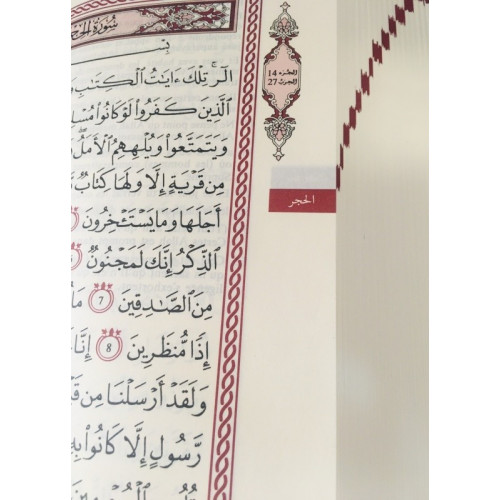 سُورَةُ الحِجْرِ
بِسْمِ
الٓرۚ تِلۡكَ ءَايَٰتُ ٱلۡكِتَٰبِ
ٱلَّذِينَ كَفَرُواْ لَوۡ كَانُواْ
وَيَتَمَتَّعُواْ وَيُلۡهِهِمُ ٱلۡأَمَلُۖ
مِن قَرۡيَةٍ إِلَّا وَلَهَا كِتَابٌ
أَجَلَهَا وَمَا يَسۡتَـٔۡخِرُونَ
ٱلذِّكۡرُ إِنَّكَ لَمَجۡنُونٌ
مِنَ ٱلصَّٰدِقِينَ 7 مَا
إِذٗا مُّنظَرِينَ 8 إِنَّا
وَلَقَدۡ أَرۡسَلۡنَا مِن
رَّسُولٍ إِلَّا كَانُواْ بِهِۦ
الجزء 14
الحزب 27
الحجر